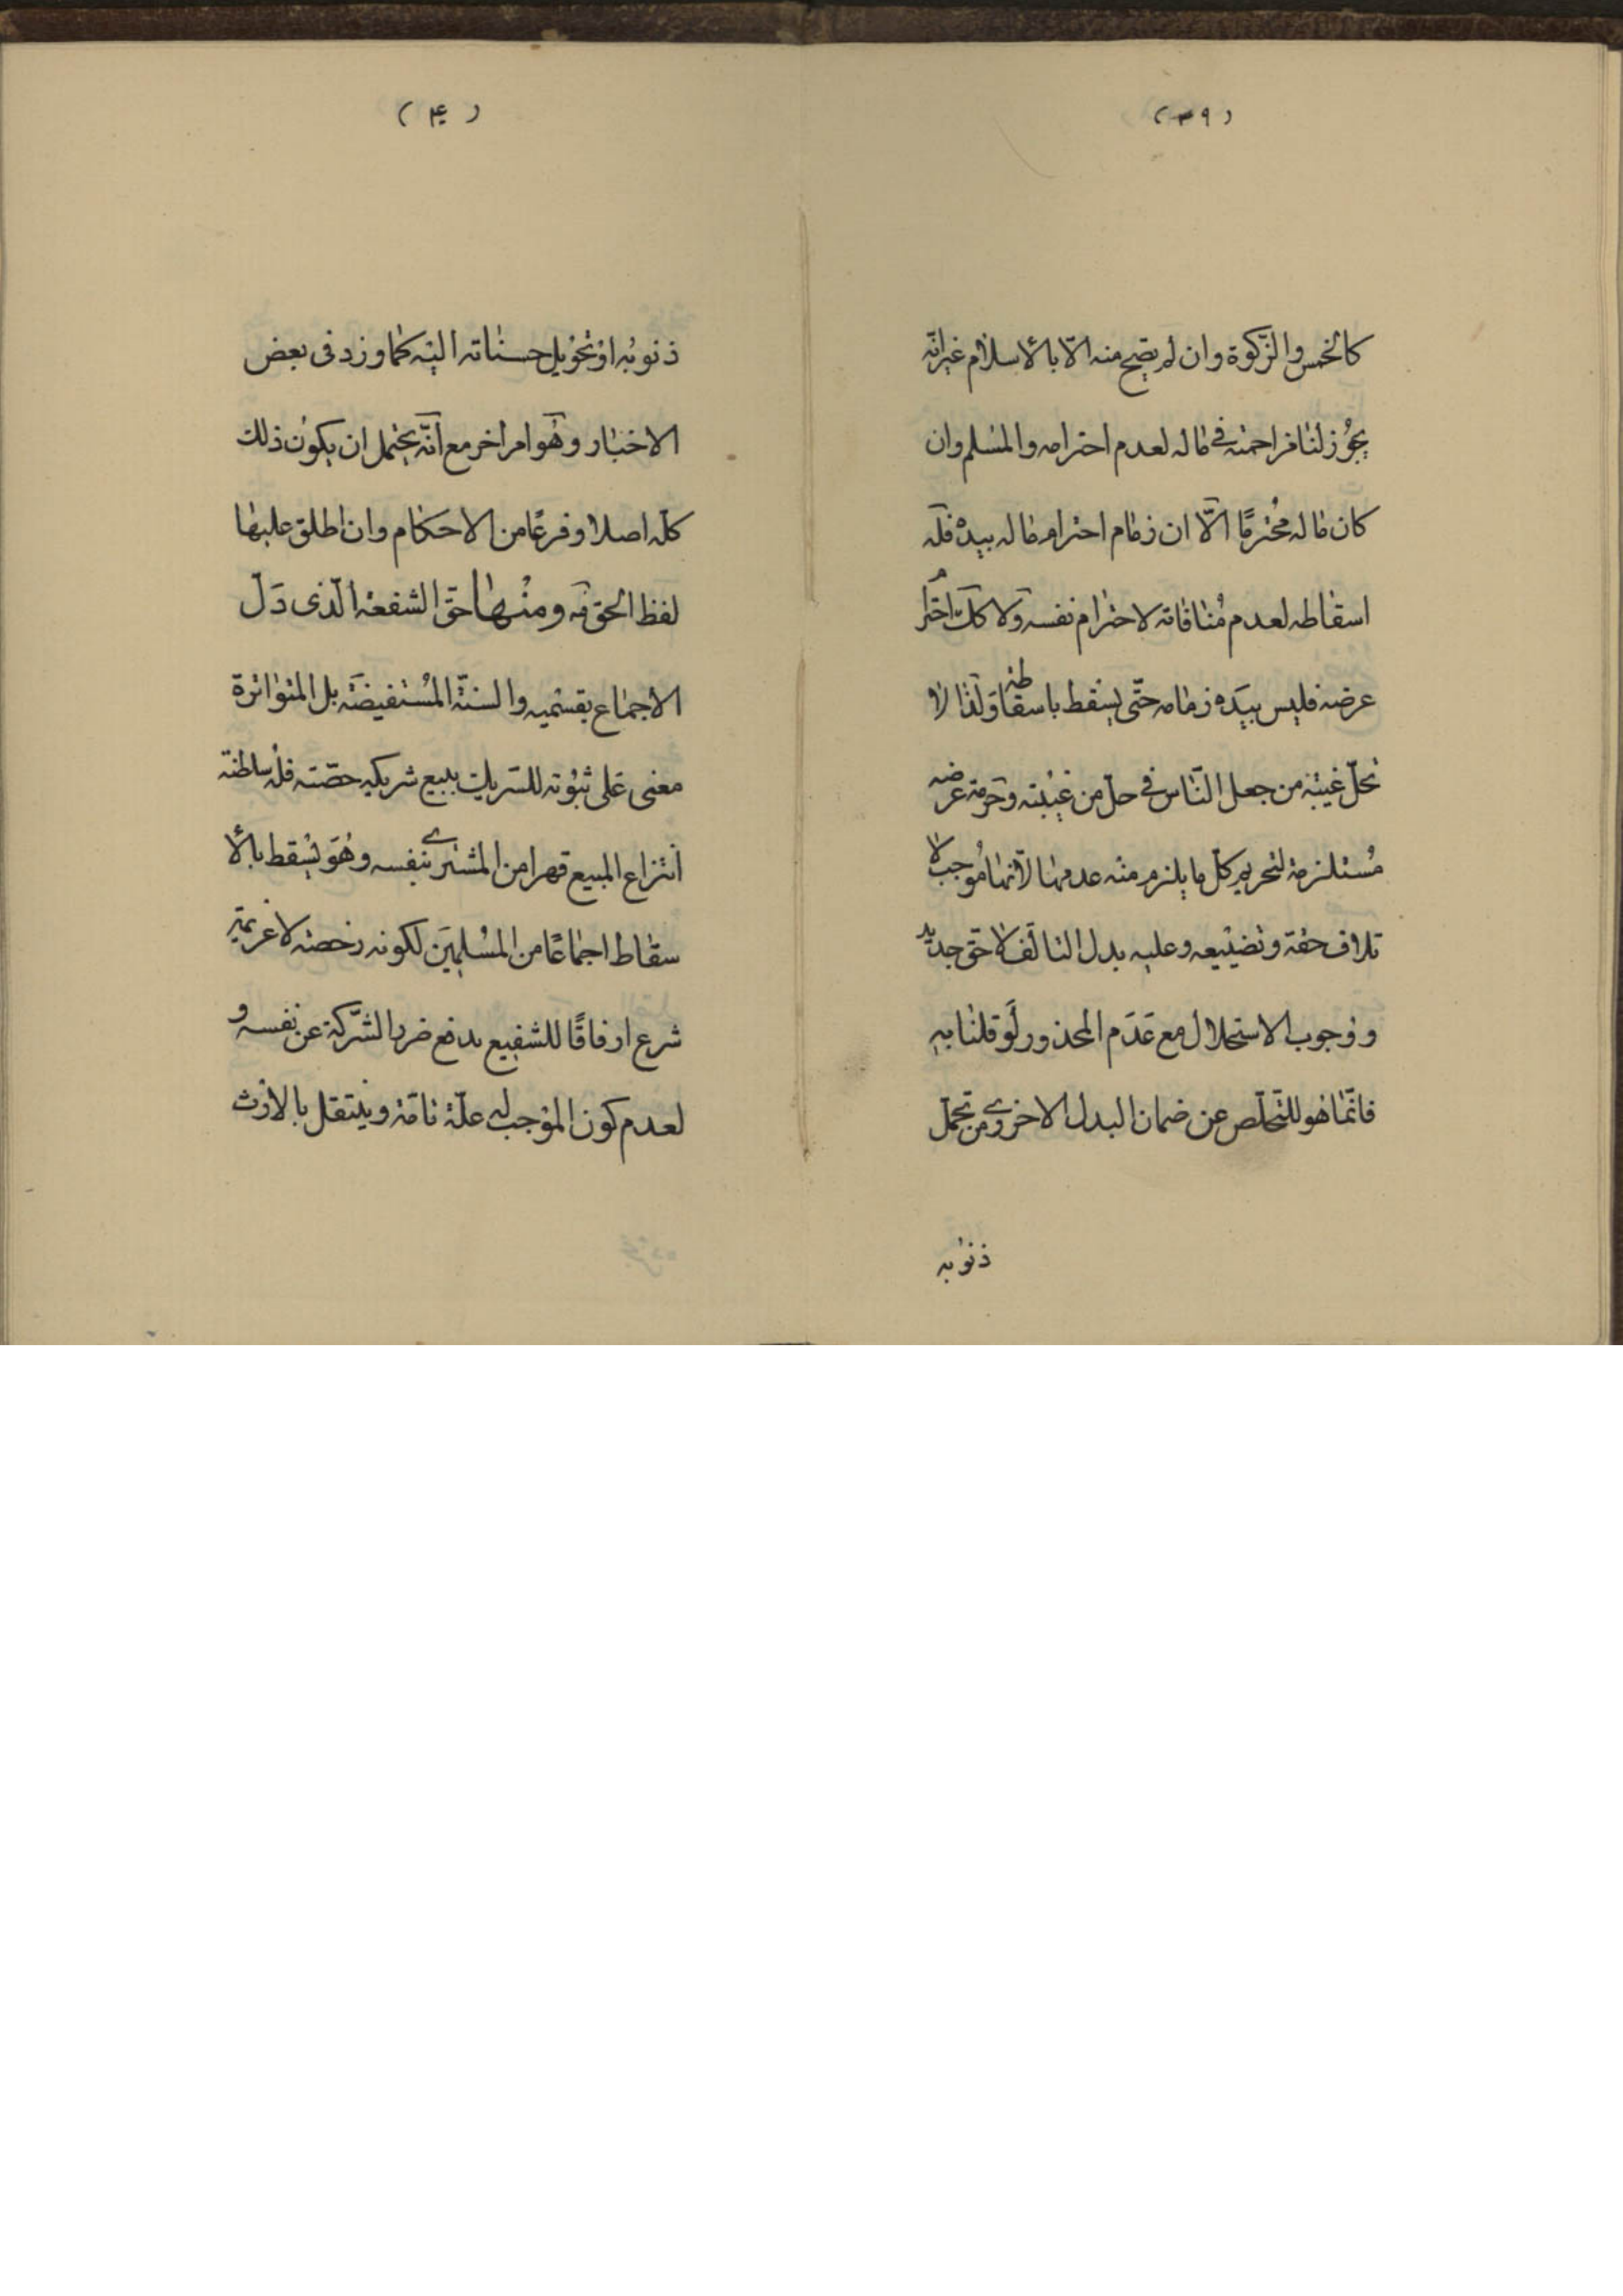 (٣٩)
كالخمس والزّكوة وان لم يصح منه الّا بالأسلام غيرانّه
يجوُز لنا مزاحمته فى ماله لعدم احترامه والمسلم وان
كان ماله مُحْترمًا الّا ان زمام احترام ماله بيده فله
اسقاطه لعدم مُنافاته لاحترام نفسه ولا كك احترام
عرضه فليس بيَده زمامه حتّى يسقط باسقاطه ولذا لا
تحلّ غيبْة من جعل النّاس فى حلّ من غيْبته وحرمة عرضه
مُستلزمة لتحريم كلّ ما يلزم منه عدمها لا انّها مُوجب لا
تلاف حقه وتضيْيعه وعليه بدل التالف لا حقّ جديد
ووجوب الاستحلال مع عَدَم المحذور لَو قلنا به
فانّما هو للتّخلّص عن ضمان البدل الاخروى من تحمّل
ذنوُبه
(۴۰)
ذنوبُه اوْ تحْويل حسناته اليْه كما ورد فى بعض
الاخبار وهُو امر اخر مع انّه يحْتمل ان يكون ذلك
كلّه اصلا وفرعًا من الاحكام وان اطلق عليها
لفظ الحق فه ومنْها حقّ الشفعة الّذى دَلّ
الاجماع بقسْميه والسنّة المُسْتفيضَة بل المتواترة
معنى عَلى ثبُوْته للشريك ببيع شريكه حصّته فله سلطنة
انْتزاع المبيع قهرا من المشترى بنفسه وهُوَ يسْقط بالأ
سقاط اجماعًا من المسْلميَن لكونه رخصة لا عزيمة
شرع ارفاقًا للشفيع بدفع ضرر الشّركة عن نفسه و
لعدم كون الموْجب له علّة تامّة وينْتقل بالارْث